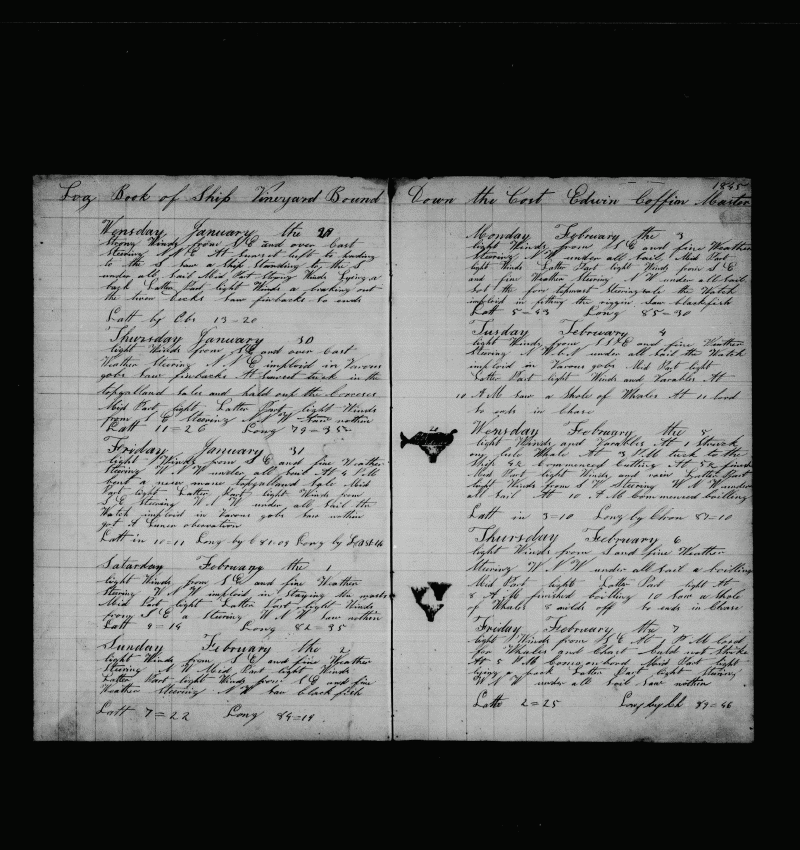 Log Book of Ship Vineyard Bound
Wensday January the 29
Strong Winds from S E and over Cast
Steering N N E At Sunset left to heading
to the S Saw a Ship Standing to the S
under all Sail Mid Part Strong Winds Lying a
back Latter Part light Winds a braking out
the lower Saw finbacks So ends
Latt by Chr 13=20
Thursday January 30
light Winds from S E and over Cast
Weather Steering N N E imploid in Varous
gobs Saw finbacks At Sunset tuck in the
topgalland Sales and hald out the
Mid Part light Latter Part light Winds
from S E Steering W N W Saw nothin
Latt 11=26 Long 79=35
Friday January 31
light Winds from S E and fine Weather
Steering W N W under all Sail At 4 P M
bent a new mane topgalland Sale Mid
Part light Latter Part light Winds from
S E Steering W N W under all Sail the
Watch imploid in Varous gobs Saw nothin
got A Luner obsevation
Latt in 10=11 Long by C 81=09 Long by L
Satarday February the 1
light Winds from S E and fine Weather
Stering W N W imploid in Staying the masts
Mid Part light Latter Part light Winds
from S E a Stering W N W Saw nothin
Latt 9=14 Long 82=35
Sunday February the 2
light Winds from S E and fine Weather
Stering N W Mid Part light Winds
Latter Part light Winds from S E and fine
Weather Steering N W Saw black fish
Latt 7=22 Long 84=14
1845
Down the Cost Edwin Coffin Master
Monday February the 3
light Winds from S E and fine Weather
Stering N W under all Sail Mid Part
light Winds Latter Part light Winds from S E
and fine Weather Stering N W under all Sail
Sot the fore topmast Steering Sale the Watch
imploid in fitting the riggin Saw blackfish
Latt 5=43 Long 85=30
Tusday February 4
light Winds from S S E and fine Weather
Stering N W b N under all Sail the Watch
imploid in Varous gobs Mid Part light
Latter Part light Winds and Varables At
10 A M Saw a Shole of Whales At 11 lord
So ends in Chase
Wensday February the 5
light Winds and Varables At 1 Struck
one Whale At 3 P M tuck to the
Ship 4½ Commenced Cutting At 5½ finish
Mid Part light Winds and rain Latter Part
light Winds from S W Steering W N W under
all Sail At 10 A M Commenced boilling
Latt in 3=10 Long by Chron 87=10
Thursday February 6
light Winds from S and fine Weather
Stering W N W under all Sail a boilling
Mid Part light Latter Part light At
8 A M finished boilling 10 Saw a Shole
of Whales 8 milds off So ends in Chase
Friday February the 7
light Winds from S E At 1 P M lord
for Whales and Chact Culd not Strike
At 5 P M Came onbord Mid Part light
lying a back Latter Part light Stering
W N W under all Sail Saw nothin
Latt 2=25 Long by Ch 89=46